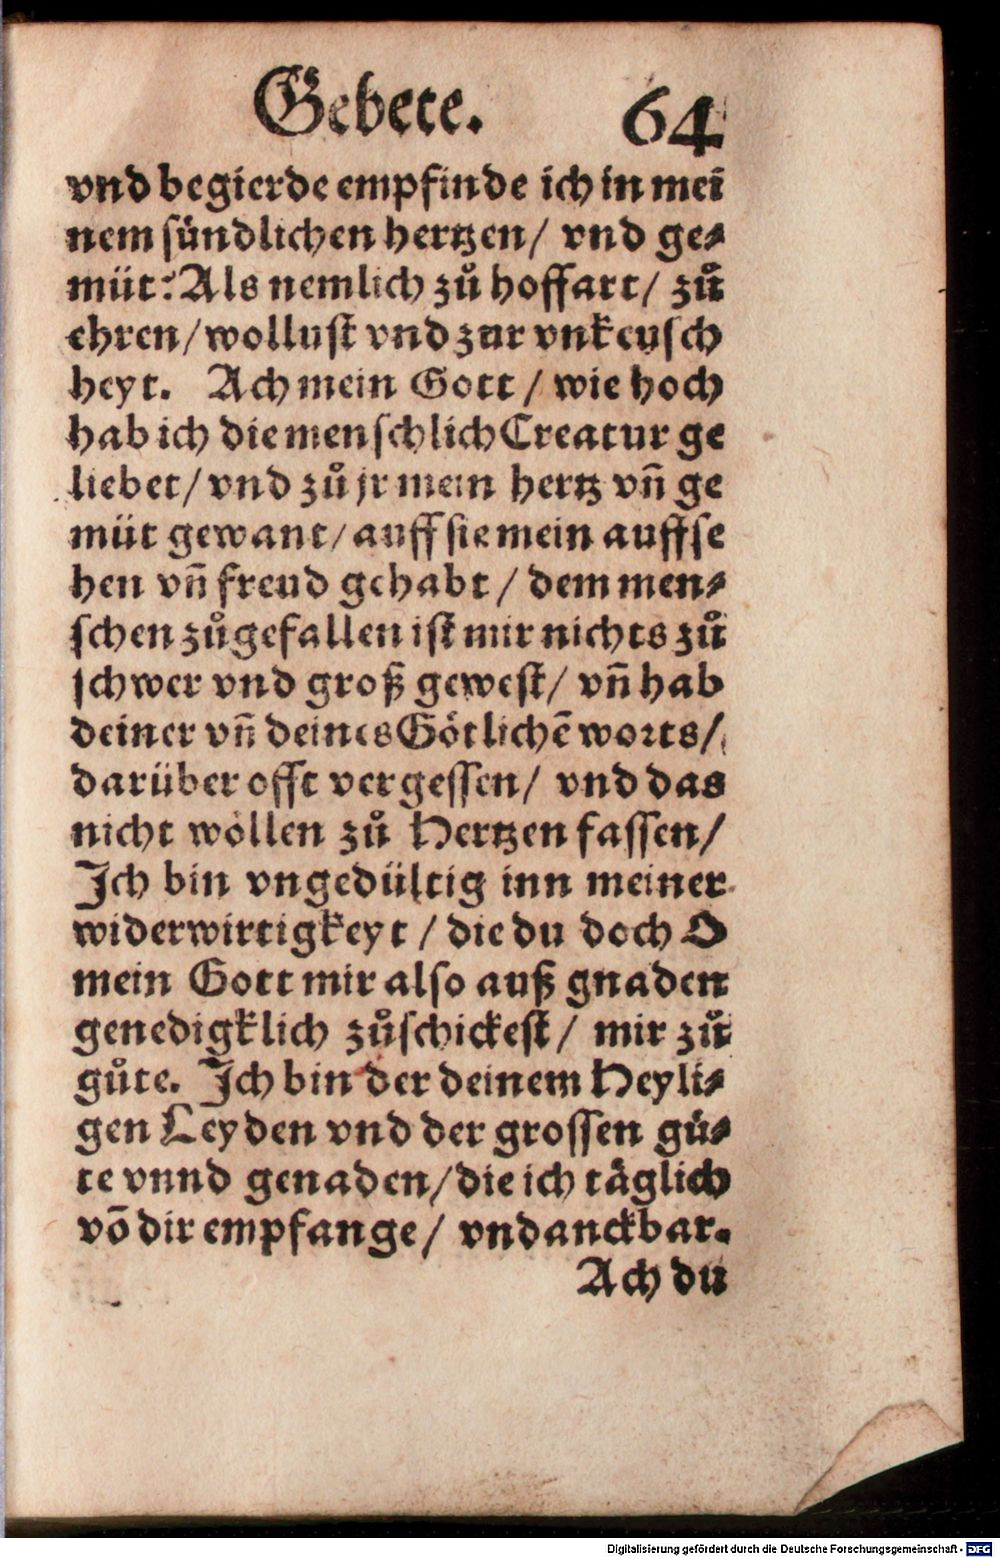 Gebete. 64
vnd begierde empfinde ich in mei
nem sündlichen hertzen/ vnd ge⸗
müt: Als nemlich zuͦ hoffart/ zuͦ
ehren/ wollust vnd zur vnkeusch
heyt. Ach mein Gott/ wie hoch
hab ich die menschlich Creatur ge
liebet/ vnd zuͦ jr mein hertz vñ ge
müt gewant/ auff sie mein auffse
hen vñ freud gehabt/ dem men⸗
schen zuͦgefallen ist mir nichts zuͦ
schwer vnd groß gewest/ vñ hab
deiner vñ deines Götlichẽ worts/
darüber offt vergessen/ vnd das
nicht wöllen zuͦ Hertzen fassen/
Ich bin vngedültig inn meiner
widerwirtigkeyt/ die du doch O
mein Gott mir also auß gnaden
genedigklich zuͦschickest/ mir zuͦ
guͦte. Ich bin der deinem Heyli⸗
gen Leyden vnd der grossen guͤ⸗
te vnnd genaden/ die ich täglich
võ dir empfange/ vndanckbar.
Ach du
Digitalisierung gefördert durch die Deutsche Forschungsgemeinschaft - DFG